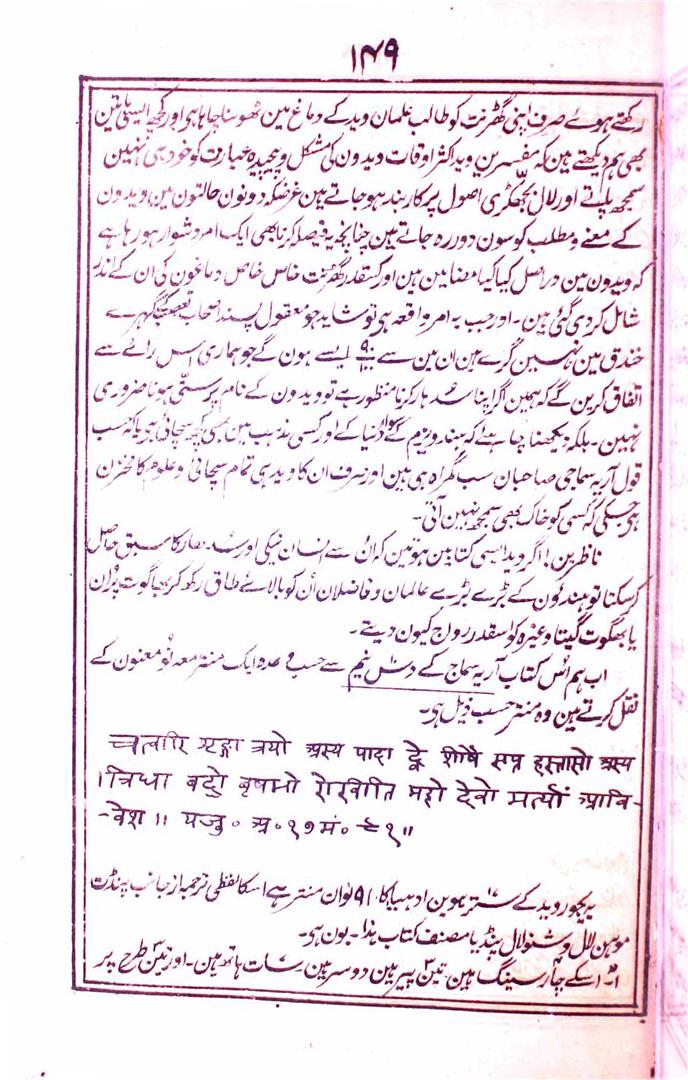 ۱۴۹
رکھتے ہوئے صرف اپنی گھڑنت کو طالب علمان وید کے دماغ مین ٹھوسنا چاہا ہی اور کچھ ایسی باتین
بھی ہم دیکھتے ہین کہ مفسرین وید اکثر اوقات ویدون کی مشکل و پیچیدہ عبارت کو خود ہی نہین
سمجھ پاتے اور لال بجھکڑی اصول پر کاربند ہو جاتے ہین غرضکہ دونون حالتون مین ویدون
کے معنے و مطلب کوسون دور رہ جاتے ہین چنانچہ یہ فیصلہ کرنا بھی ایک امر دشوار ہو رہا ہے
کہ ویدون مین دراصل کیا کیا مضامین ہین اور کسقدر گھڑنت خاص خاص دماغون کی ان کے اندر
شامل کر دی گئی ہین۔ اور جب یہ امر واقعہ ہی تو شاید جو معقول پسند اصحاب تعصب کے گہرے
خندق مین نہین گرے ہین ان مین سے ۹۰ ایسے ہون گے جو ہماری اس رائے سے
اتفاق کرین گے کہ ہمین اگر اپنا سدہار کرنا منظور ہے تو ویدون کے نام پر ستی ہونا ضروری
نہین۔ بلکہ دیکھنا چاہئے کہ ہندوزم کے سوا دنیا کے اور کسی مذہب مین بھی کچھ سچائی ہی یا کہ حسب
قول آریہ سماجی صاحبان سب گمراہ ہی ہین اور صرف ان کا وید ہی تمام سچائی و علوم کا مخزن
ہی جسکی کہ کسی کو خاک بھی سمجھ نہین آتی۔
ناظرین! اگر وید ایسی کتابین ہوتین کہ ان سے انسان نیکی اور سدھار کا سبق حاصل
کر سکتا تو ہندوون کے بڑے بڑے عالمان و فاضلان ان کو بالائے طاق رکھ کر بھاگوت پران
یا بھگوت گیتا وغیرہ کو اسقدر رواج کیون دیتے۔
اب ہم اس کتاب آریہ سماج کے دس نیم سے حسب وعدہ ایک منتر معہ نو معنون کے
نقل کرتے ہین وہ منتر حسب ذیل ہی۔
चत्वारि शृङ्गा त्रयो अस्य पादा द्वे शीर्षे सप्त हस्तासो अस्य
। त्रिधा बद्धो वृषभो रोरवीति महो देवो मर्त्यां आवि-
-वेश ॥ यजु॰ अ॰ १७ मं॰ ९१॥
یہ یجوروید کے ۱۷ سترہوین ادھیا کا ۹۱ نوان منتر ہے اسکا لفظی ترجمہ از جانب پنڈت
موہن لال وشنو لال پنڈیا مصنف کتاب ہذا۔ یون ہی۔
اسکے چار سینگ ہین۔ تین ۳ پیر ہین دو سر ہین سات ہاتھ ہین۔ اور تین ۳ طرح پر